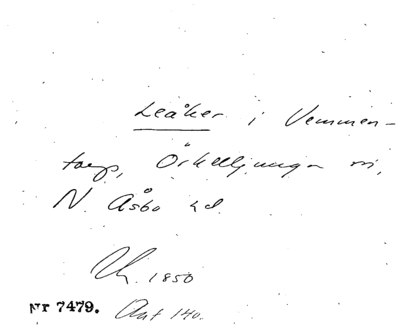 Leåker i Vemmen-
torp, Örkelljunga sn,
N. Åsbo hd.
1850
Nr 7479. Ant 140.